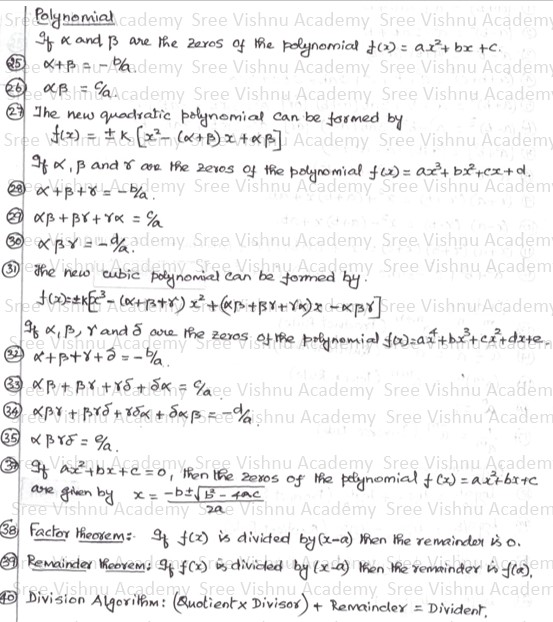 Polynomial
If α and β are the zeros of the polynomial f(x) = ax²+bx+c.
25 α+β = -b/a
26 αβ = c/a
27 The new quadratic polynomial can be formed by
f(x) = ± k [x² - (α+β)x + αβ]
If α, β and γ are the zeros of the polynomial f(x) = ax³+bx²+cx+d.
28 α+β+γ = -b/a.
29 αβ+βγ+γα = c/a
30 αβγ = -d/a.
31 The new cubic polynomial can be formed by.
f(x)=±k[x³ - (α+β+γ) x² + (αβ+βγ+γα)x - αβγ]
If α, β, γ and δ are the zeros of the polynomial f(x)=ax⁴+bx³+cx²+dx+e.
32 α+β+γ+δ = -b/a.
33 αβ + βγ + γδ + δα = c/a.
34 αβγ + βγδ + γδα + δαβ = -d/a.
35 αβγδ = e/a.
37 If ax²+bx+c=0, then the zeros of the polynomial f(x) = ax²+bx+c
are given by x = -b±√b²-4ac / 2a
38 Factor theorem:- If f(x) is divided by (x-a) then the remainder is 0.
39 Remainder theorem: If f(x) is divided by (x-a) then the remainder is f(a).
40 Division Algorithm: (Quotient x Divisor) + Remainder = Divident.
Sree Vishnu Academy